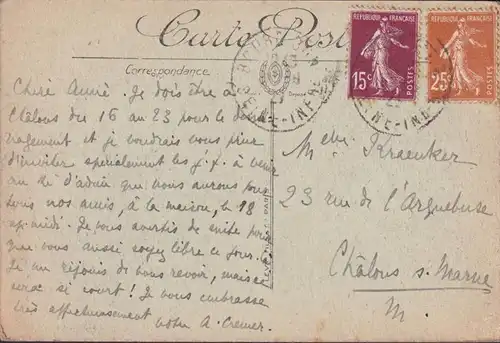 Carte Postale
Correspondance
REPUBLIQUE FRANÇAISE
15c
POSTES
REPUBLIQUE FRANÇAISE
25c
POSTES
NE-INF
Chère Amie. Je dois être à
Châlons du 16 au 23 pour le
et je voudrais vous prier
d'inviter spécialement les à venir
au thé d'adieu que nous aurons pour
tous nos amis, à la maison, le 18
ap-midi. Je vous avertis de suite pour
que vous aussi soyez libre ce jour-là.
Je me réjouis de vous revoir, mais ce
sera si court! Je vous embrasse
très affectueusement votre A. Cremer.
Melle Kraenker
23 rue de l'Arquebuse
Châlons s. Marne
M.